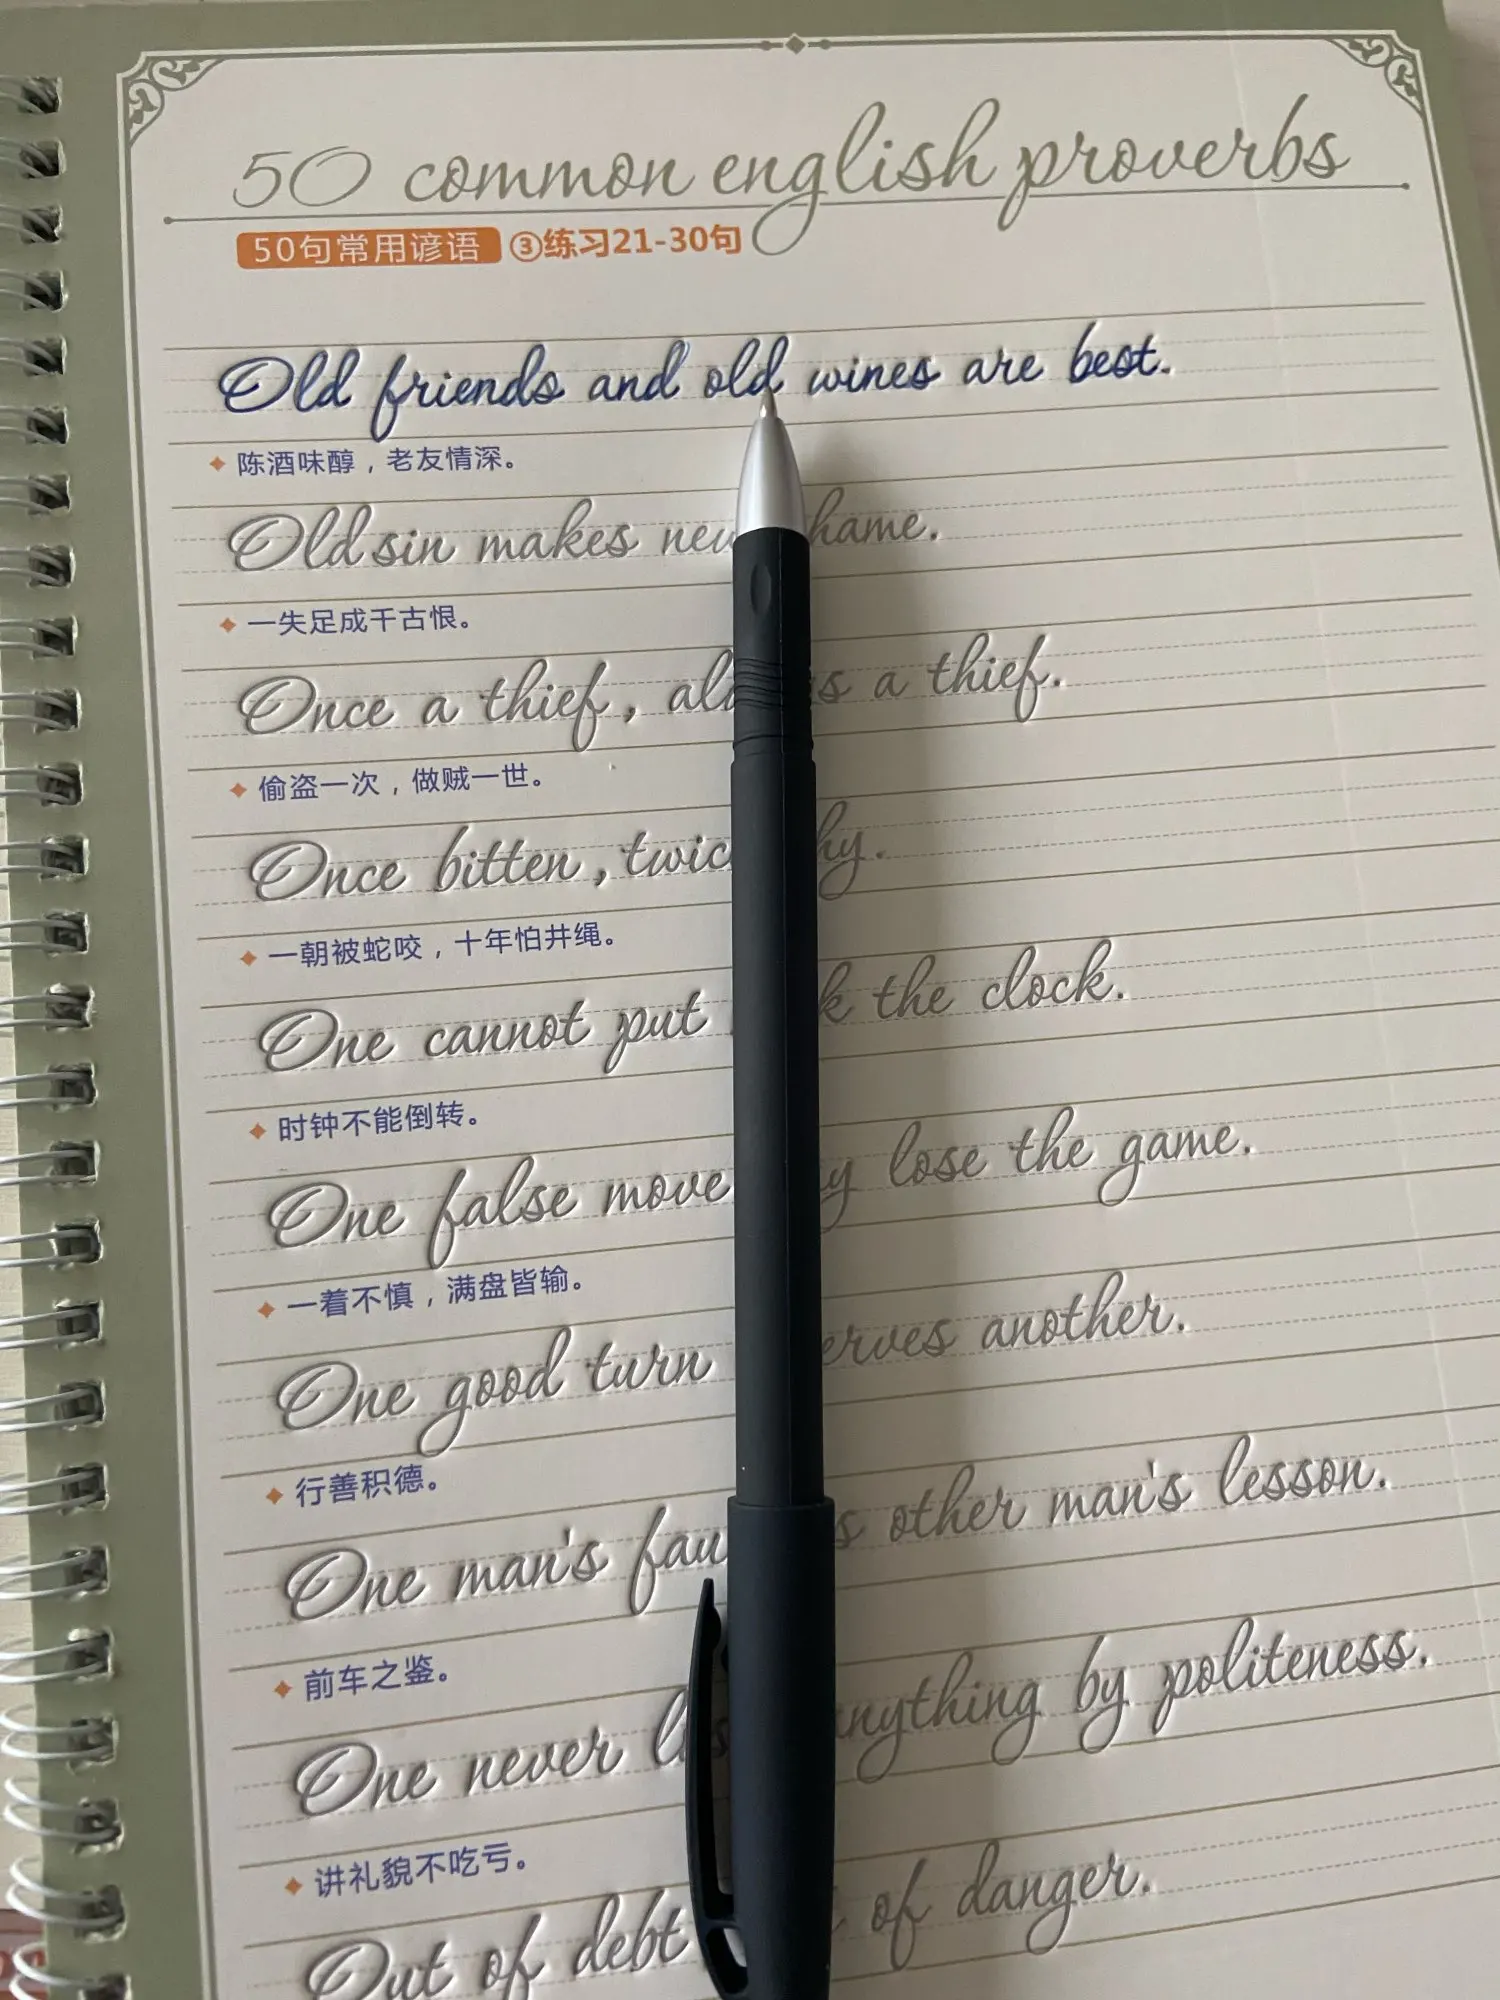 50 common english proverbs
50句常用谚语 ③练习21-30句
Old friends and old wines are best.
陈酒味醇，老友情深。
Old sin makes hame.
一失足成千古恨。
Once a thief, a thief.
偷盗一次，做贼一世。
Once bitten, hy.
一朝被蛇咬，十年怕井绳。
One cannot put k the clock.
时钟不能倒转。
One false move y lose the game.
一着不慎，满盘皆输。
One good turn erves another.
行善积德。
One man's other man's lesson.
前车之鉴。
One never anything by politeness.
讲礼貌不吃亏。
Out of debt of danger.